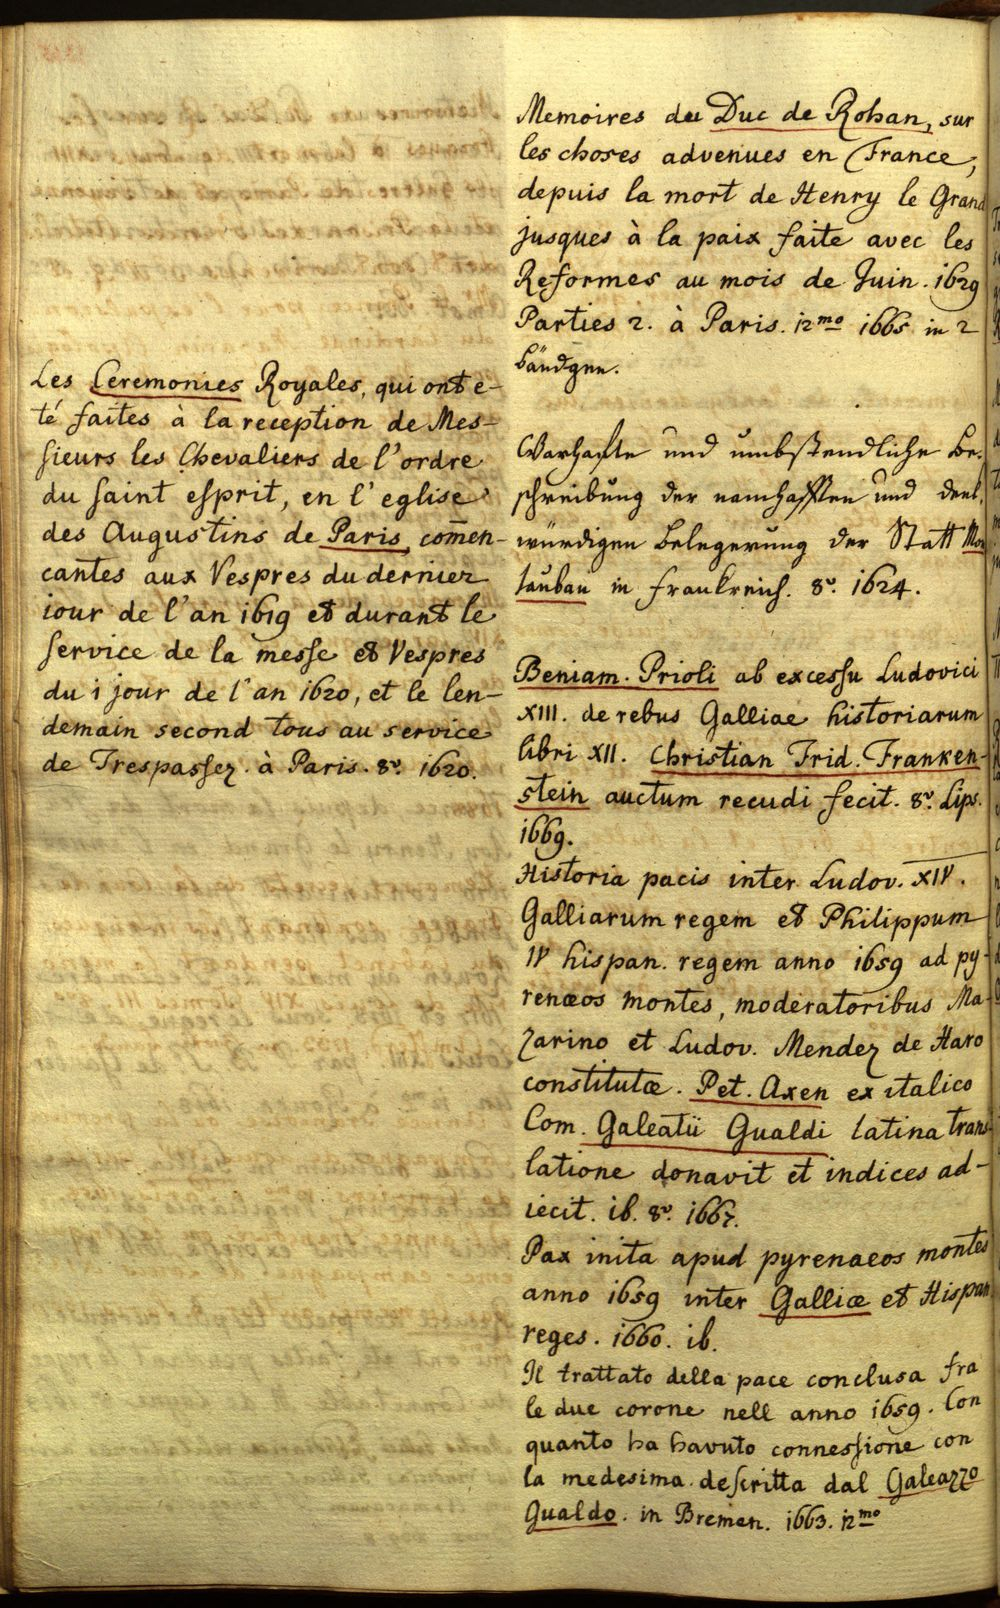 Les Ceremonies Royales, qui ont é-
té faites à la reception de Mes-
sieurs les Chevaliers de l'ordre
du saint esprit, en l'eglise
des Augustins de Paris, com̄en-
cantes aux Vespres du dernier
iour de l'an 1619 et durant le
service de la messe et Vespres
du 1 jour de l'an 1620, et le len-
demain second tous au service
de Trespassez. à Paris. 8º. 1620.
Memoires du Duc de Rohan, sur
les choses advenues en France,
depuis la mort de Henry le Grand
jusques à la paix faite avec les
Reformes au mois de Juin. 1629
Parties 2. à Paris. 12mo 1665 in 2
bändgen.
Warhaffte und umbständliche Be-
schreibung der namhafften und denk-
würdigen Belegerung der Statt Mon
tauban in Frankreich. 8º. 1624.
Beniam. Prioli ab excessu Ludovici
XIII. de rebus Galliae historiarum
libri XII. Christian Frid. Franken-
stein auctum recudi fecit. 8º. Lips.
1669.
Historia pacis inter Ludov. XIV.
Galliarum regem et Philippum
IV hispan. regem anno 1659 ad py-
renæos montes, moderatoribus Ma-
zarino et Ludov. Mendez de Haro
constitutæ. Pet. Axen ex italico
Com. Galeatii Gualdi latina trans-
latione donavit et indices ad-
iecit. ib. 8º. 1667.
Pax inita apud pyrenaeos montes
anno 1659 inter Galliæ et Hispan.
reges. 1660. ib.
Il trattato della pace conclusa fra
le due corone nell anno 1659. Con
quanto ha havuto connessione con
la medesima descritta dal Galeazzo
Gualdo. in Bremen. 1663. 12mo